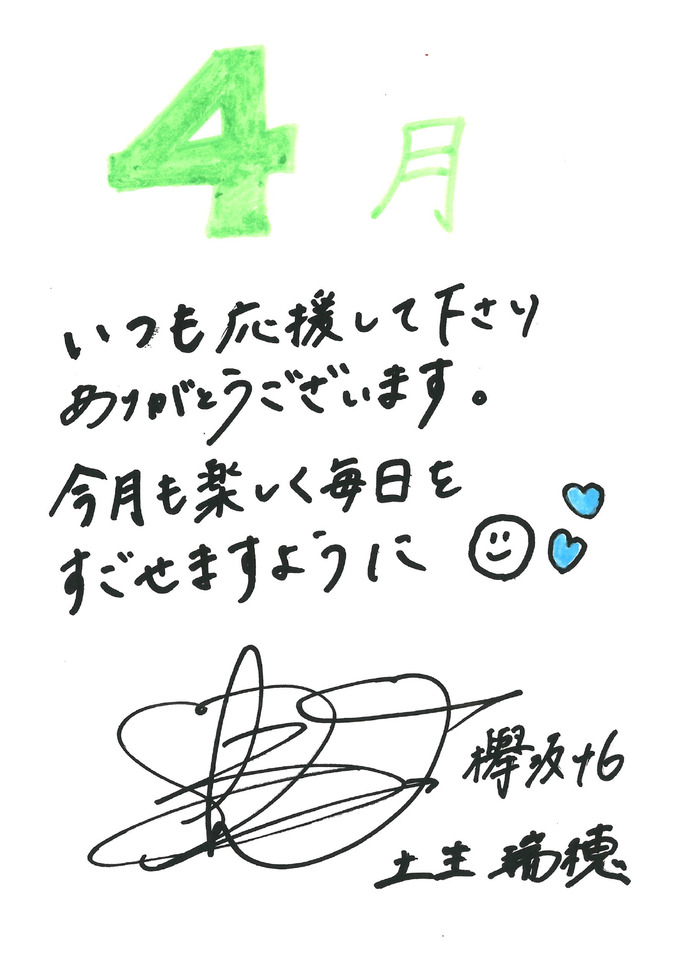 4月
いつも応援して下さり
ありがとうございます。
今月も楽しく毎日を
すごせますように
欅坂46
土生瑞穂